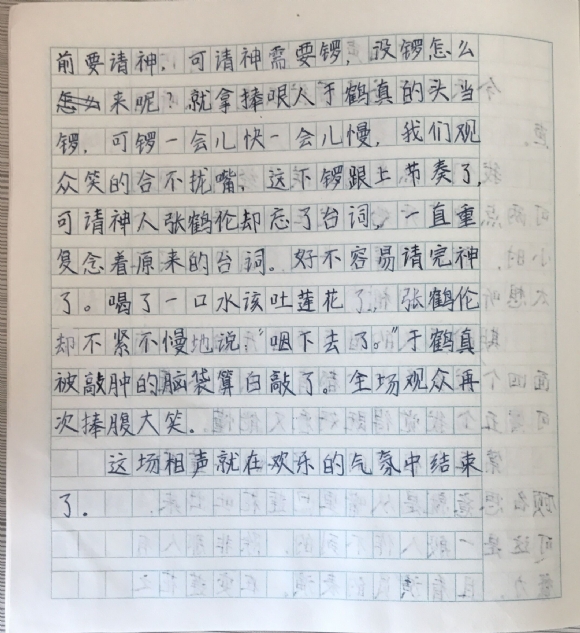 前要请神，可请神需要锣，没锣怎么
来呢？就拿捧哏人于鹤真的头当
锣，可锣一会儿快一会儿慢，我们观
众笑的合不拢嘴，这下锣跟上节奏了，
可请神人张鹤伦却忘了台词，一直重
复念着原来的台词。好不容易请完神
了。喝了一口水该吐莲花了，张鹤伦
却不紧不慢地说：“咽下去了。”于鹤真
被敲肿的脑袋算白敲了。全场观众再
次捧腹大笑。
这场相声就在欢乐的气氛中结束
了。